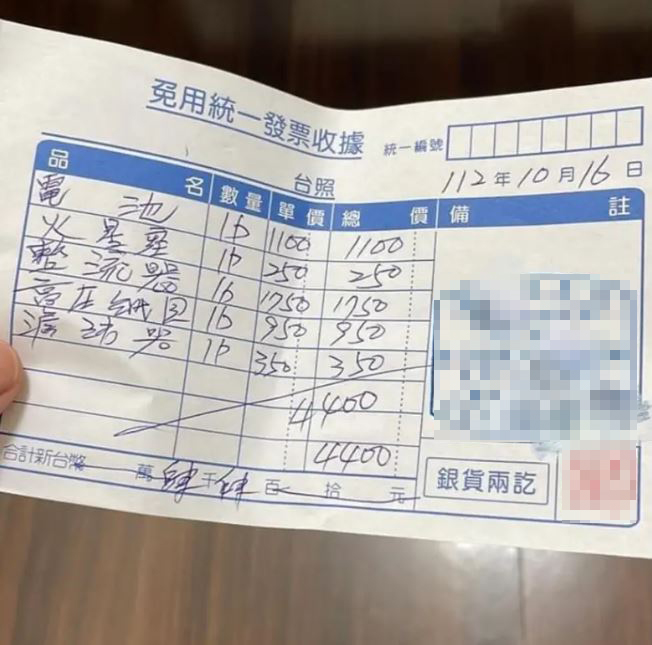 免用統一發票收據
統一編號
台照
112年10月16日
品名 數量 單價 總價 備註
電池 1b 1100 1100
火星塞 1b 250 250
整流器 1b 1750 1750
高壓線圈 1b 950 950
啟動器 1b 350 350
4400
4400
合計新台幣 萬肆千肆百拾元
銀貨兩訖